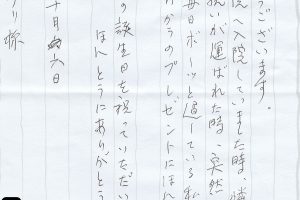 うございます。
院へ入院していました時、隣
扱いが運ばれた時、突然
毎日ボーッと過している私
かからのプレゼントにほん
の誕生日を祝っていただい
ほんとうにありがとう
十月 六日
リ 様